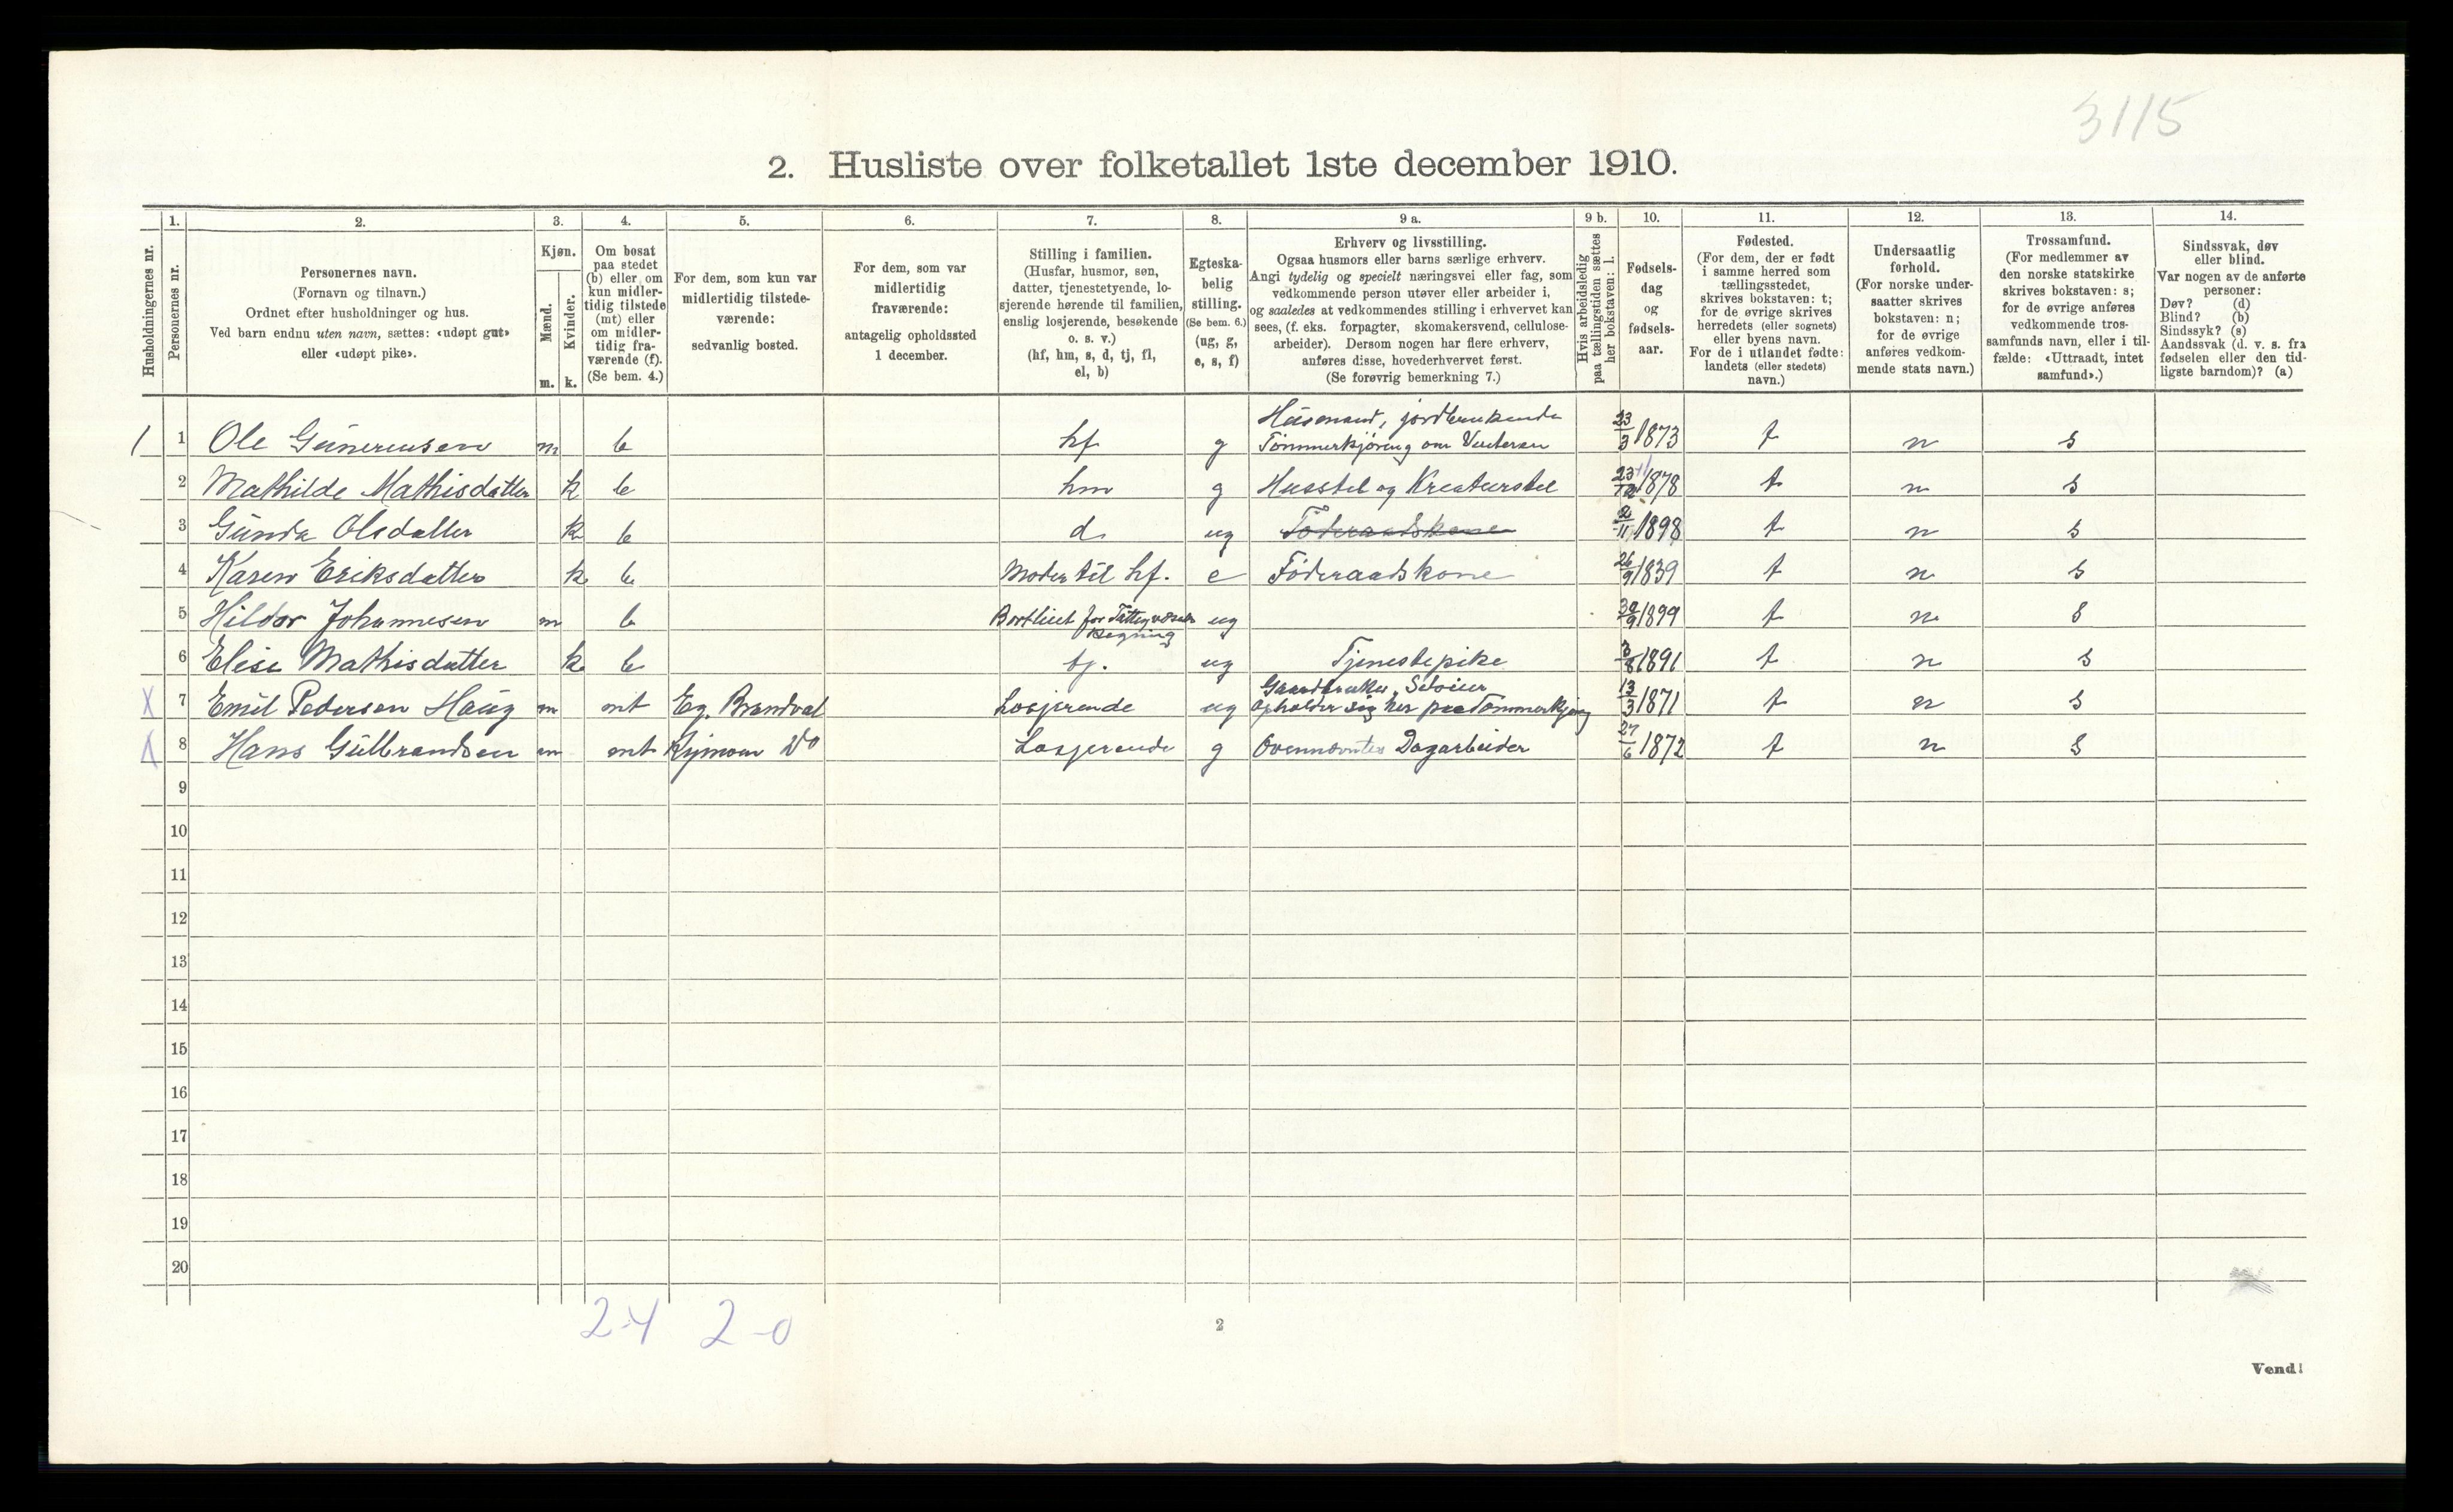 3115
2. Husliste over folketallet 1ste december 1910.
Husholdningernes nr.
1. Personernes nr.
2. Personernes navn.
(Fornavn og tilnavn.)
Ordnet efter husholdninger og hus.
Ved barn endnu uten navn, sættes: «udøpt gut»
eller «udøpt pike».
3. Kjøn.
Mænd. m.
Kvinder. k.
4. Om bosat
paa stedet
(b) eller om
kun midler-
tidig tilstede
(mt) eller
om midler-
tidig fra-
værende (f).
(Se bem. 4.)
5. For dem, som kun var
midlertidig tilstede-
værende:
sedvanlig bosted.
6. For dem, som var
midlertidig
fraværende:
antagelig opholdssted
1 december.
7. Stilling i familien.
(Husfar, husmor, søn,
datter, tjenestetyende, lo-
sjerende hørende til familien,
enslig losjerende, besøkende
o. s. v.)
(hf, hm, s, d, tj, fl,
el, b)
8. Egteska-
belig
stilling.
(Se bem. 6.)
(ug, g,
e, s, f)
9 a. Erhverv og livsstilling.
Ogsaa husmors eller barns særlige erhverv.
Angi tydelig og specielt næringsvei eller fag, som
vedkommende person utøver eller arbeider i,
og saaledes at vedkommendes stilling i erhvervet kan
sees, (f. eks. forpagter, skomakersvend, cellulose-
arbeider). Dersom nogen har flere erhverv,
anføres disse, hovederhvervet først.
(Se forøvrig bemerkning 7.)
9 b. Hvis arbeidsledig
paa tællingstiden sættes
her bokstaven: l.
10. Fødsels-
dag
og
fødsels-
aar.
11. Fødested.
(For dem, der er født
i samme herred som
tællingsstedet,
skrives bokstaven: t;
for de øvrige skrives
herredets (eller sognets)
eller byens navn.
For de i utlandet fødte:
landets (eller stedets)
navn.)
12. Undersaatlig
forhold.
(For norske under-
saatter skrives
bokstaven: n;
for de øvrige
anføres vedkom-
mende stats navn.)
13. Trossamfund.
(For medlemmer av
den norske statskirke
skrives bokstaven: s;
for de øvrige anføres
vedkommende tros-
samfunds navn, eller i til-
fælde: «Uttraadt, intet
samfund».)
14. Sindssvak, døv
eller blind.
Var nogen av de anførte
personer:
Døv? (d)
Blind? (b)
Sindssyk? (s)
Aandssvak (d. v. s. fra
fødselen eller den tid-
ligste barndom)? (a)
1 1 Ole Gunerensen m b hf g Husmand, jordbrukende
Tømmerkjøring om Vinteren 23/3 1873 t n s
2 Mathilde Mathisdatter k b hm g Husstel og Kreaturstel 23/12 1878 t n s
3 Gunda Olsdatter k b d ug Föderaadskone 2/11 1898 t n s
4 Karen Eriksdatter k b Moder til hf. e Föderaadskone 26/9 1839 t n s
5 Hildor Johannesen m b Bortliset for Fattigvæsenets
Regning ug 30/9 1899 t n s
6 Elise Mathisdatter k b tj. ug Tjenestepike 3/8 1891 t n s
X 7 Emil Pedersen Haug m mt Eg. Brandval Losjerende ug Gaardbruker, Selveier
Opholder sig her paa Tømmerkjøring 13/3 1871 t n s
X 8 Hans Gulbrandsen m mt Do Losjerende g Ovennævntes Dagarbeider 27/6 1872 t n s
9
10
11
12
13
14
15
16
17
18
19
20
2-4 2-0
2
Vend!